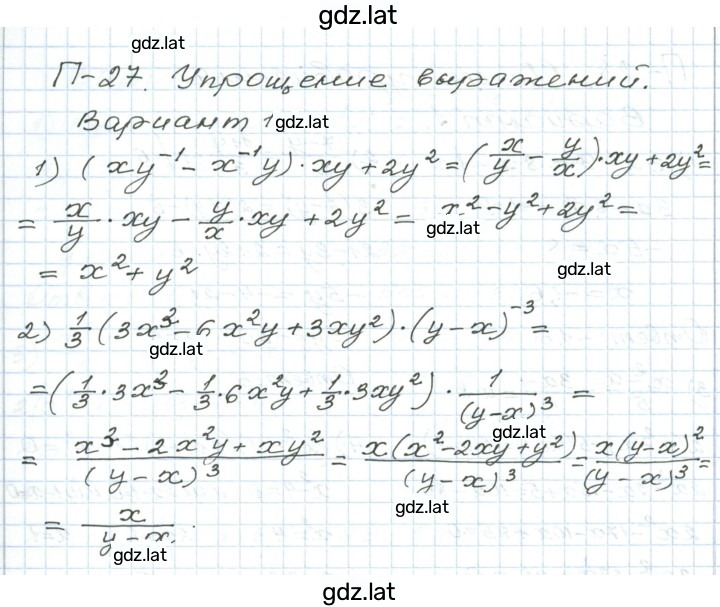 gdz.lat
gdz.lat
П-27. Упрощение выражений.
Вариант 1 gdz.lat
1) (xy⁻¹ - x⁻¹y) · xy + 2y² = (x/y - y/x) · xy + 2y² =
= x/y · xy - y/x · xy + 2y² = x² - y² + 2y² =
gdz.lat
= x² + y²
gdz.lat
2) 1/3 (3x³ - 6x²y + 3xy²) · (y - x)⁻³ =
gdz.lat
= (1/3 · 3x³ - 1/3 · 6x²y + 1/3 · 3xy²) · 1/(y-x)³ =
gdz.lat
= (x³ - 2x²y + xy²)/(y - x)³ = x(x² - 2xy + y²)/(y - x)³ = x(y-x)²/(y - x)³ =
gdz.lat
= x/(y - x).
gdz.lat
gdz.lat